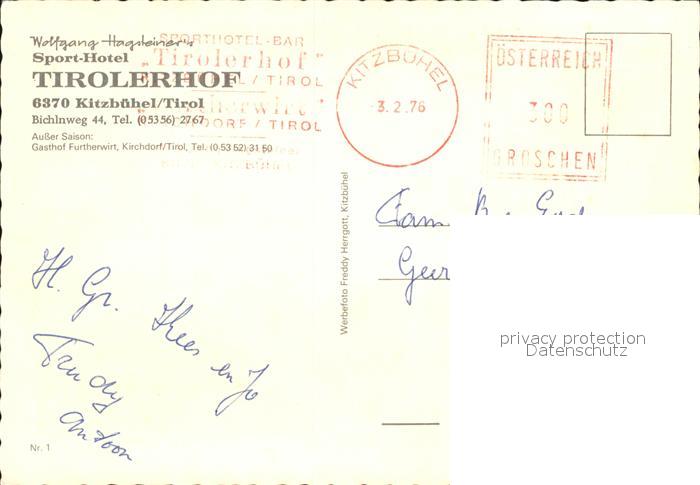 Wolfgang Hagsteiner's
Sport-Hotel
TIROLERHOF
6370 Kitzbühel/Tirol
Bichlnweg 44, Tel. (0 53 56) 27 67
Außer Saison:
Gasthof Furtherwirt, Kirchdorf/Tirol, Tel. (0 53 52) 31 50
SPORTHOTEL-BAR
„Tirolerhof"
/ TIROL
DORF / TIROL
KITZBÜHEL
-3.2.76
ÖSTERREICH
300
GROSCHEN
Werbefoto Freddy Herrgott, Kitzbühel
Fam
H. Gr. Kees en Jo
Trudy
Antoon
Nr. 1
privacy protection
Datenschutz